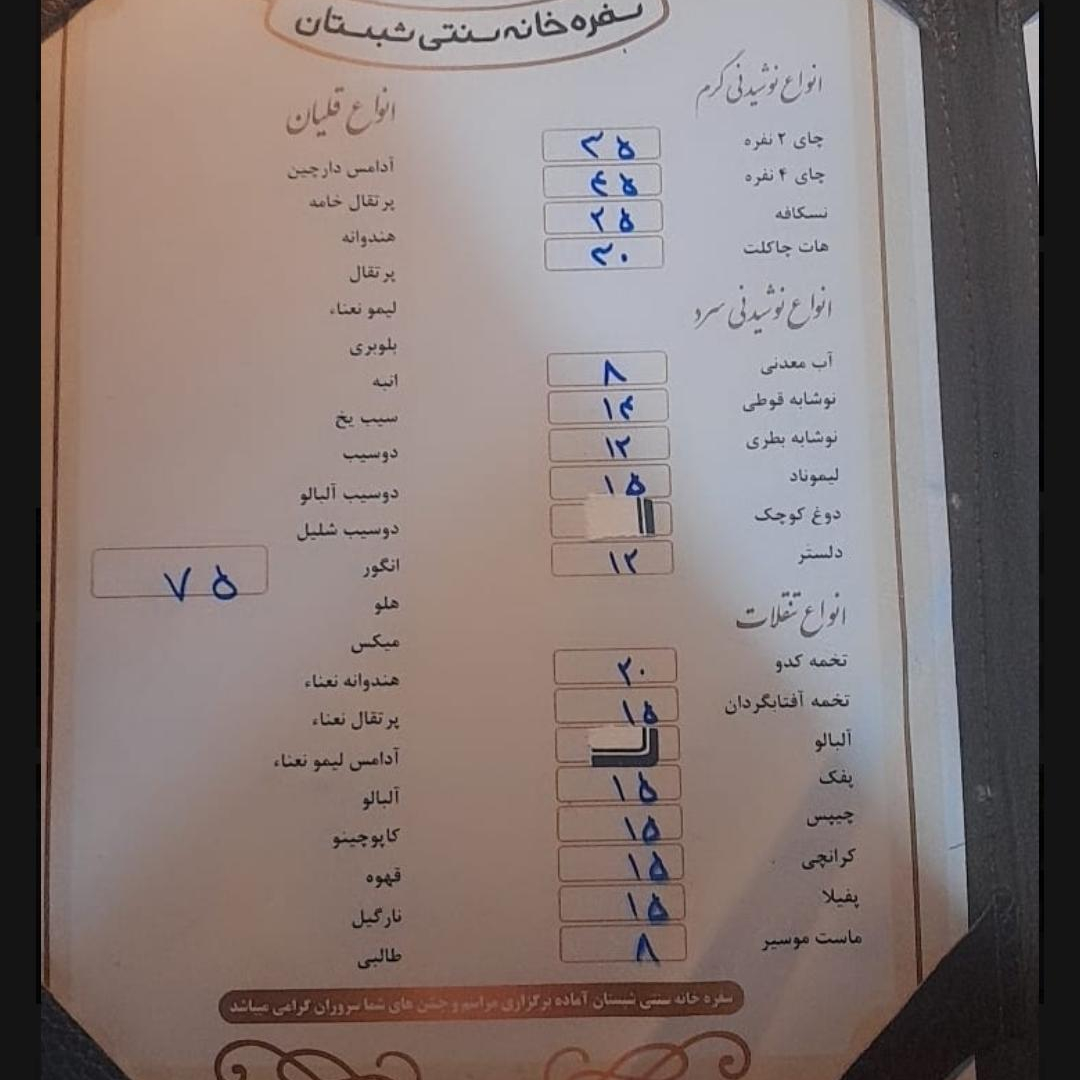 سفره خانه سنتی شبستان
انواع نوشیدنی گرم
چای ۲ نفره ۳۵
چای ۴ نفره ۴۵
نسکافه ۲۵
هات چاکلت ۳۰
انواع نوشیدنی سرد
آب معدنی ۸
نوشابه قوطی ۱۴
نوشابه بطری ۱۲
لیموناد ۱۵
دوغ کوچک
دلستر ۱۲
انواع تنقلات
تخمه کدو ۲۰
تخمه آفتابگردان ۱۵
آلبالو
پفک ۱۵
چیپس ۱۵
کرانچی ۱۵
پفیلا ۱۵
ماست موسیر ۸
انواع قلیان
آدامس دارچین
پرتقال خامه
هندوانه
پرتقال
لیمو نعناء
بلوبری
انبه
سیب یخ
دوسیب
دوسیب آلبالو
دوسیب شلیل
انگور ۷۵
هلو
میکس
هندوانه نعناء
پرتقال نعناء
آدامس لیمو نعناء
آلبالو
کاپوچینو
قهوه
نارگیل
طالبی
سفره خانه سنتی شبستان آماده برگزاری مراسم و جشن های شما سروران گرامی میباشد